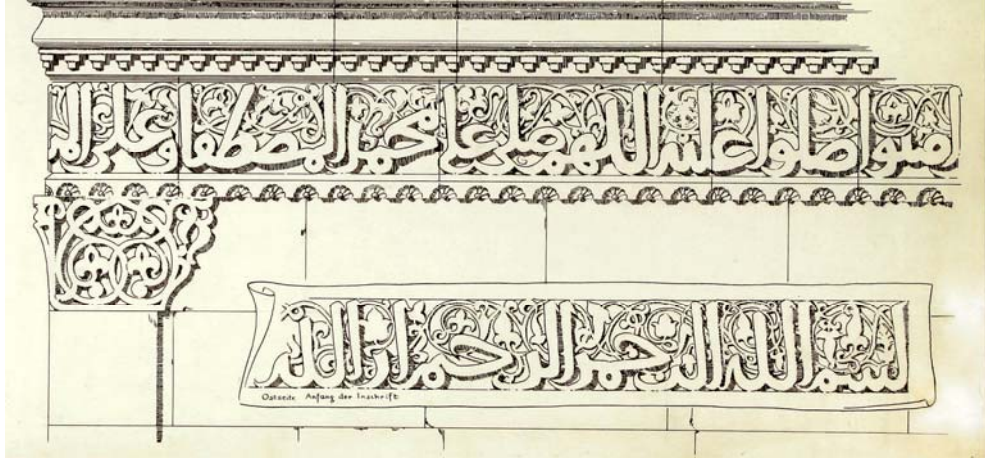 امنوا صلوا عليه اللهم صل على محمد المصطفا وعلى
بسم الله الرحمن الرحيم ان الله
Ostseite Anfang der Inschrift